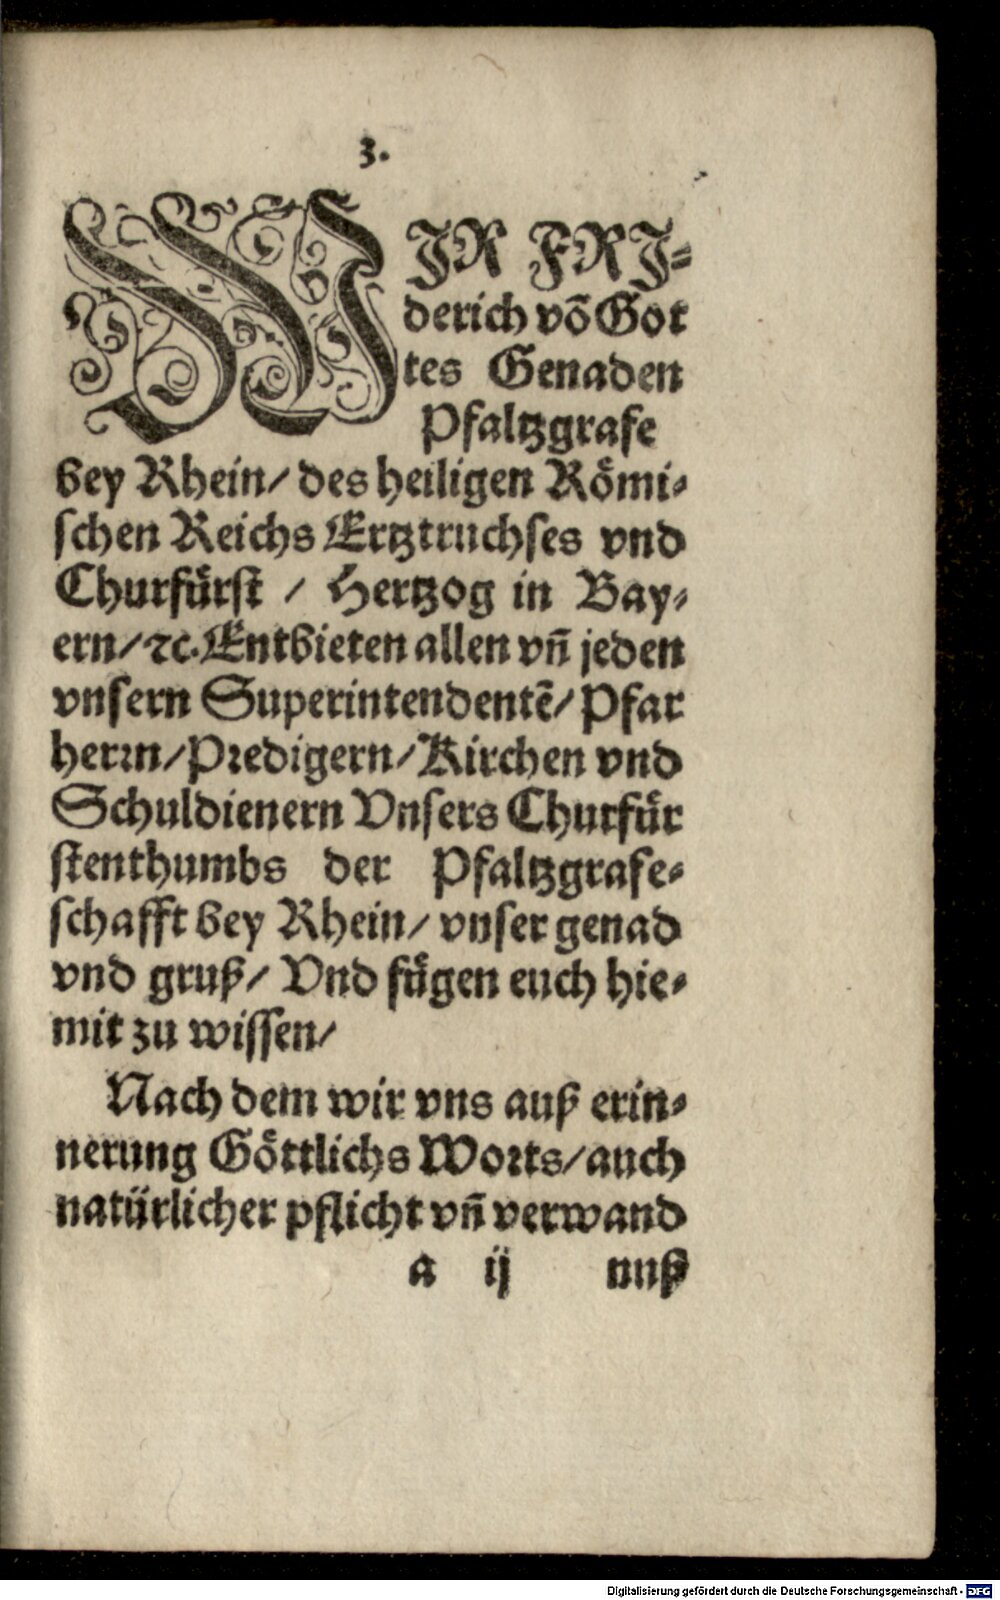 3.
WIR FRI⸗
derich võ Got
tes Genaden
Pfaltzgrafe
bey Rhein/ des heiligen Römi⸗
schen Reichs Ertztruchses vnd
Churfürst / Hertzog in Bay⸗
ern/ ꝛc. Entbieten allen vñ jeden
vnsern Superintendentẽ/ Pfar
herrn/ Predigern/ Kirchen vnd
Schuldienern Vnsers Churfür
stenthumbs der Pfaltzgrafe⸗
schafft bey Rhein/ vnser genad
vnd gruß/ Vnd fügen euch hie⸗
mit zu wissen/
Nach dem wir vns auß erin⸗
nerung Göttlichs Worts/ auch
natürlicher pflicht vñ verwand
a ij nuß
Digitalisierung gefördert durch die Deutsche Forschungsgemeinschaft - DFG